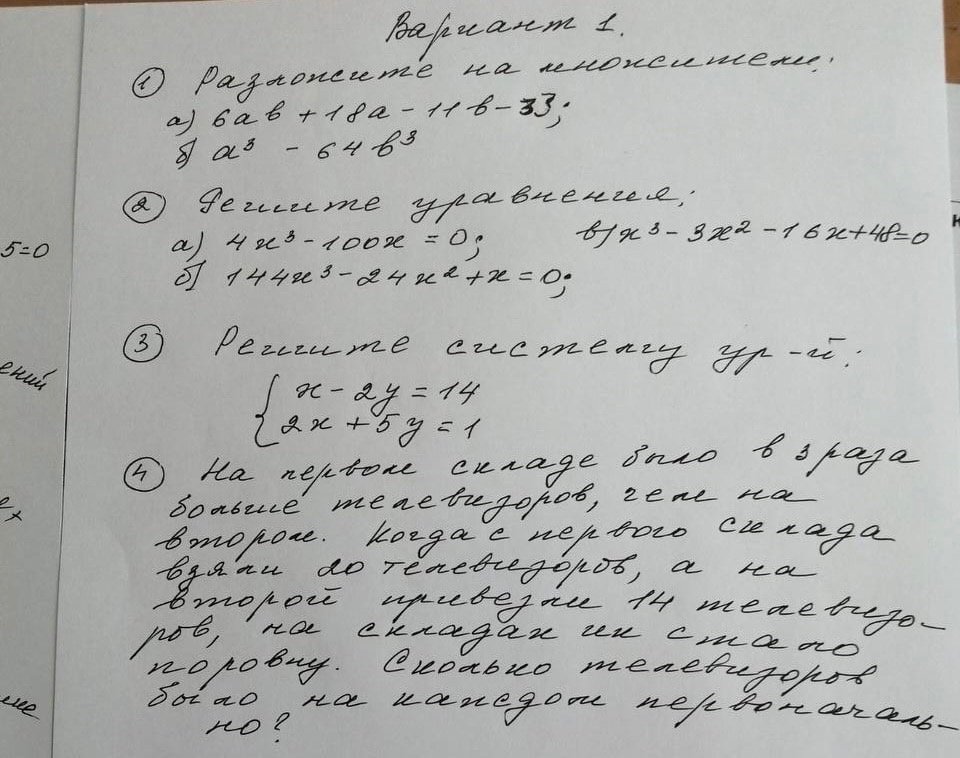 Вариант 1.
① Разложите на множители:
а) 6ab + 18a - 11b - 33;
б) a³ - 64b³
② Решите уравнения:
а) 4x³ - 100x = 0; в) x³ - 3x² - 16x + 48 = 0
б) 144x³ - 24x² + x = 0;
③ Решите систему ур-й:
{ x - 2y = 14
2x + 5y = 1
④ На первом складе было в 3 раза
больше телевизоров, чем на
втором. Когда с первого склада
взяли 20 телевизоров, а на
второй привезли 14 телевизо-
ров, на складах их стало
поровну. Сколько телевизоров
было на каждом первоначаль-
но?
5=0
ений
х